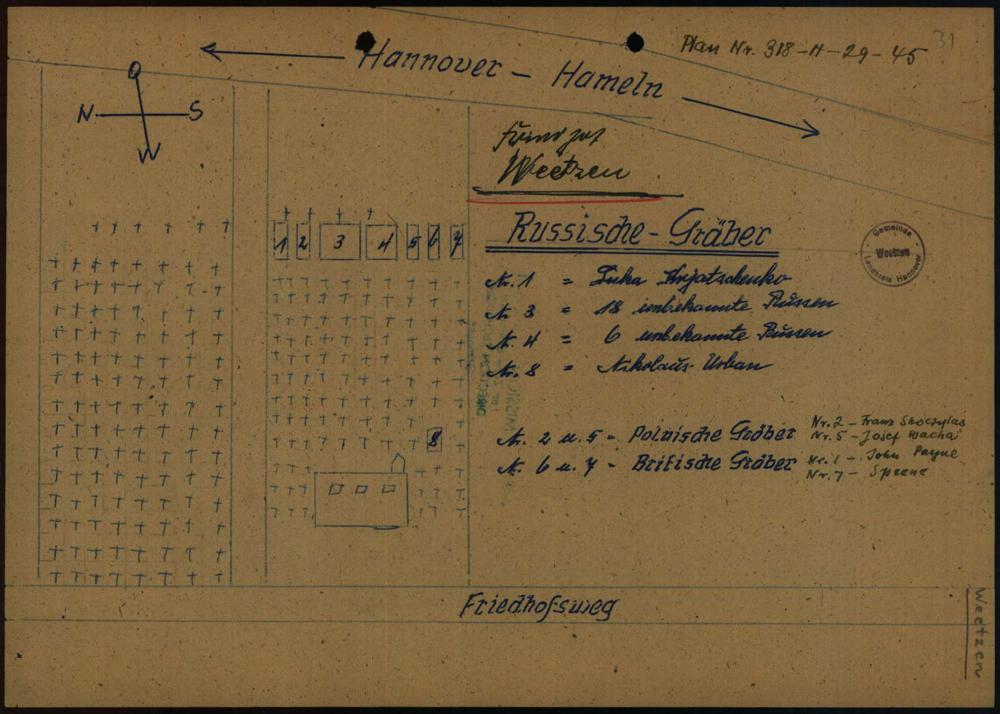 31
Plan Nr. 318-H-29-45
Hannover - Hameln
O
N S
W
Weetzen
Russische-Gräber
1 2 3 4 5 6 7
Nr. 1 = Luka
Nr. 3 = 18 unbekannte Russen
Nr. 4 = 6 unbekannte Russen
Nr. 8 = Nikolaus Urban
Gemeinde
Weetzen
Landkreis Hannover
8
Nr. 2 u. 5 - Polnische Gräber
Nr. 6 u. 7 - Britische Gräber
Nr. 2 - Franz Skoczylas
Nr. 5 - Josef Wacha
Nr. 1 - John Payne
Nr. 7 - Speene
Friedhofsweg
Weetzen